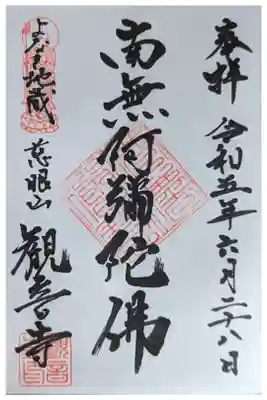 奉拝 令和五年六月二十八日
南無阿彌陀佛
地蔵
慈眼山
観音寺